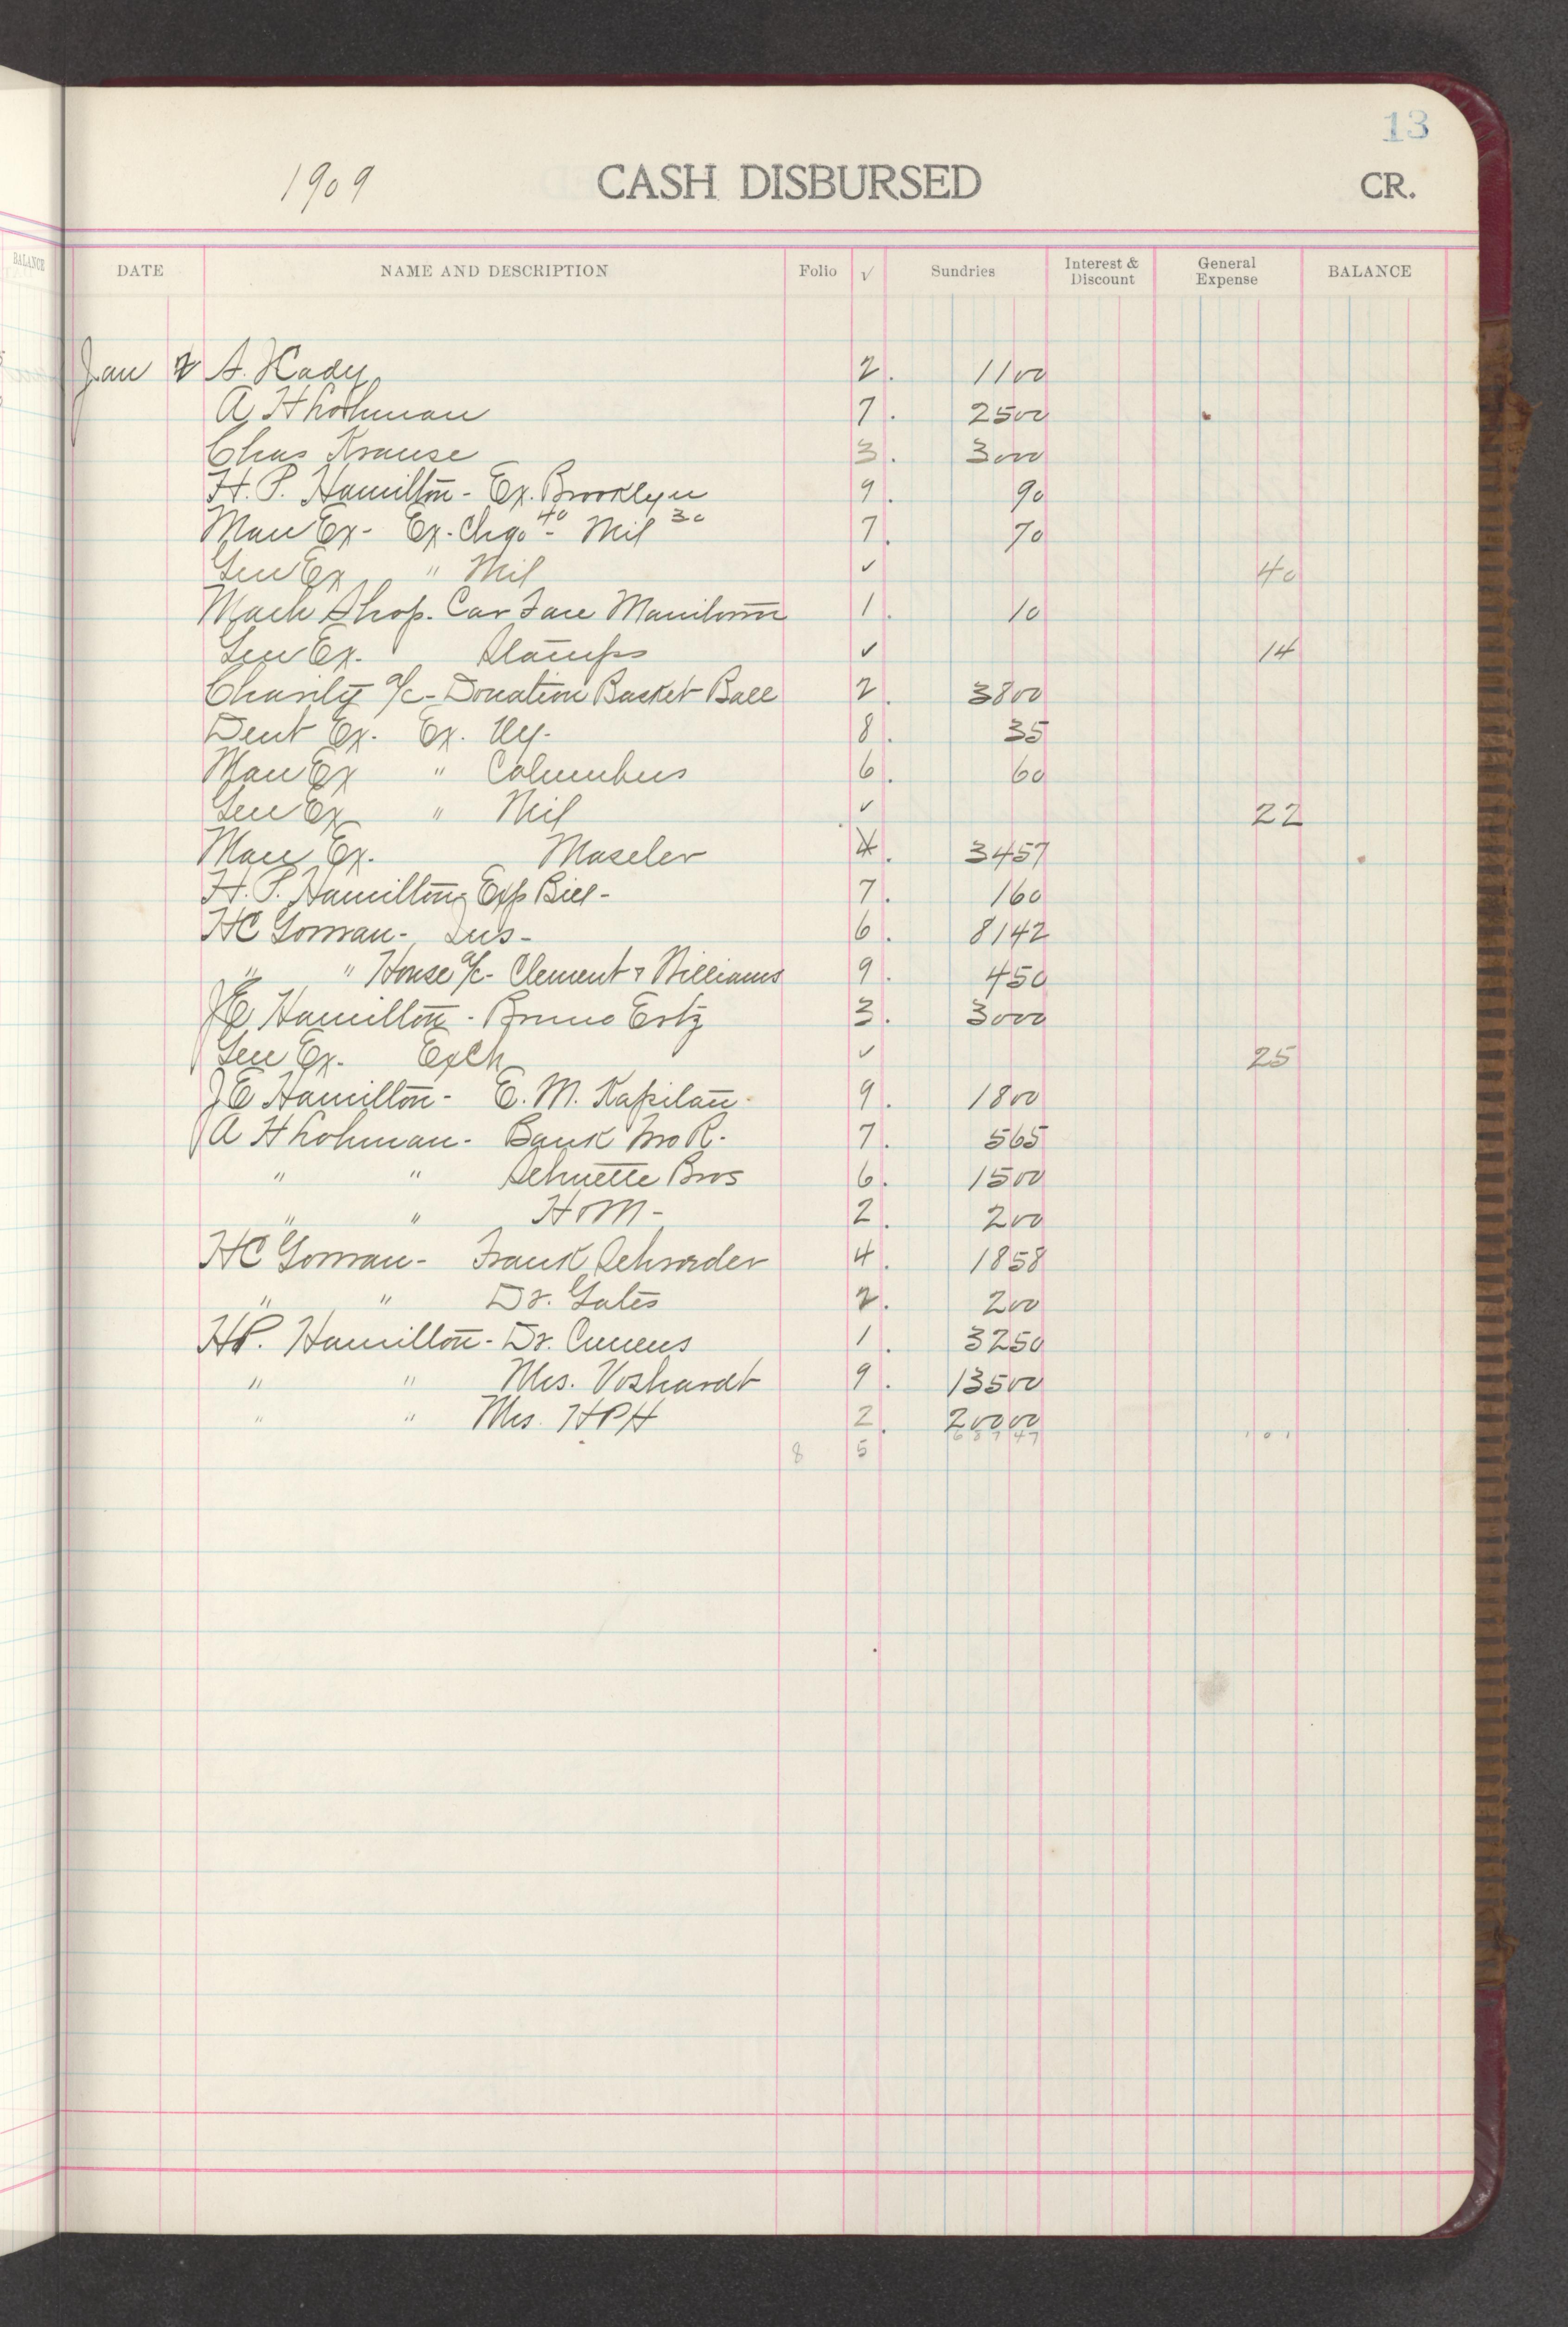 13
1909 CASH DISBURSED CR.
BALANCE
DATE NAME AND DESCRIPTION Folio √ Sundries Interest & Discount General Expense BALANCE
Jan 2 A. Kady 2. 1100
A H Lohman 7. 2500
Chas Krause 3. 3000
H. P. Hamilton - Ex. Brooklyn 9. 90
Man Ex - Ex. Chgo 40 - Mil 30 7. 70
Gen Ex " Mil ✓ 40
Mach Shop. Car Fare Manitowoc 1. 10
Gen Ex. Stamps ✓ 14
Charity a/c - Donation Basket Ball 2. 3800
Dent Ex. Ex. 8. 35
Man Ex " Columbus 6. 60
Gen Ex " Mil ✓ 22
Man Ex. Maseler 4. 3457
H. P. Hamilton Exp Bill - 7. 160
HC Gorman - Ins - 6. 8142
" " House a/c - Clement & Williams 9. 450
JE Hamilton - Bruno Ertz 3. 3000
Gen Ex. Exch ✓ 25
JE Hamilton - E. M. 9. 1800
A H Lohman - Bank 7. 565
" " Schuette Bros 6. 1500
" " 2. 200
HC Gorman - Frank Schroeder 4. 1858
" " Dr. Gates 2. 200
HP. Hamilton - Dr. 1. 3250
" " Mrs. Voshardt 9. 13500
" " Mrs. HPH 2. 20000
68747 101
8 5